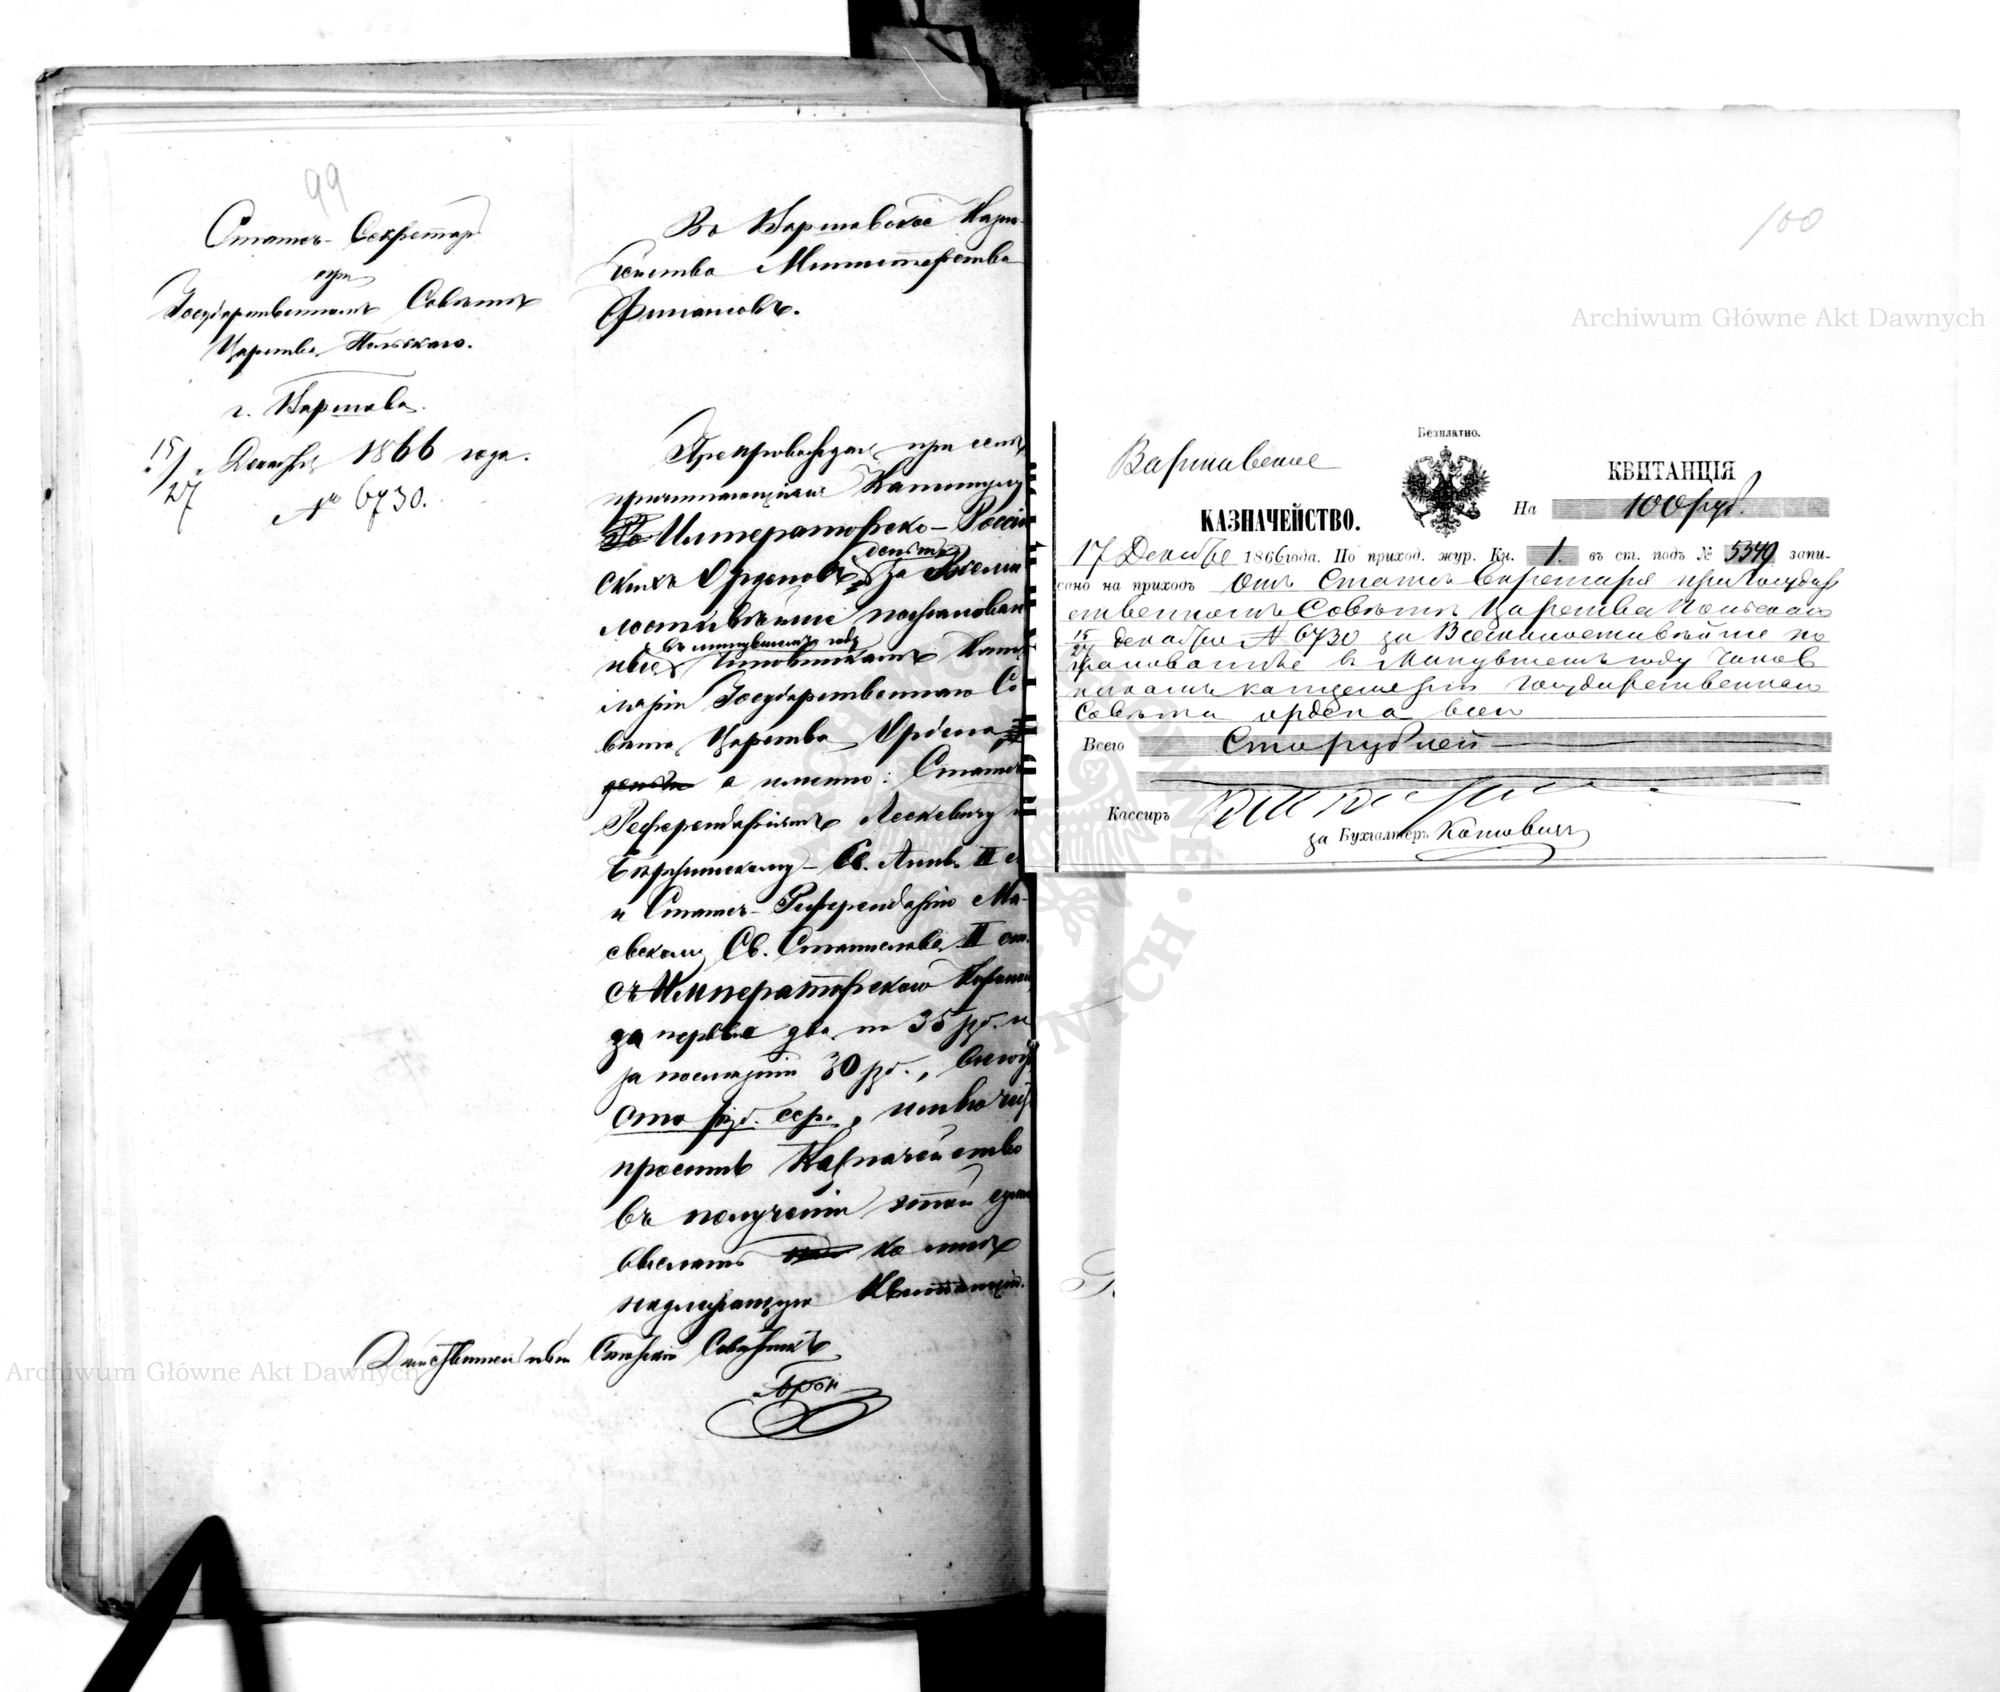 99
Статсъ-Секретарь
при
Государственномъ Совѣтѣ
Царства Польскаго.
г. Варшава.
15/27 Декабря 1866 года.
№ 6730.
Въ Варшавское Казна-
чейство Министерства
Финансовъ.
Препровождая при семъ
причитающіяся Капитулу
Императорско-Россій-
скихъ Орденовъ деньги за Всеми-
лостивѣйше пожалован-
ные въ минувшемъ году Чиновникамъ Канце-
ляріи Государственнаго Со-
вѣта Царства Ордена,
а именно: Статсъ-
Референдаріямъ Лескевичу и
Св. Анны II ст.
и Статсъ-Референдарію Ма-
евскому Св. Станислава II ст.
съ Императорскою Короною
за первые два по 35 рб. и
за послѣдній 30 рб., всего
сто рб. сер., имѣю честь
просить Казначейство
въ полученіи этой суммы
выслать ко мнѣ
надлежащую Квитанцію.
Дѣйствительный Статскій Совѣтникъ
100
Безплатно.
Варшавское
КАЗНАЧЕЙСТВО.
КВИТАНЦІЯ
На 100 руб.
17 Декабря 1866 года. По приход. жур. Кн. 1. въ ст. подъ № 5549 запи-
сано на приходъ Отъ Статсъ Секретаря при Государ
ственномъ Совѣтѣ Царства Польскаго
15/27 декабря № 6730 за Всемилостивѣйше по
жалованные въ Минувшемъ году Чинов
никамъ канцеляріи Государственнаго
Совѣта ордена всего
Всего Сто рублей
Кассиръ
за Бухгалтеръ Котовичъ
Archiwum Główne Akt Dawnych
Archiwum Główne Akt Dawnych